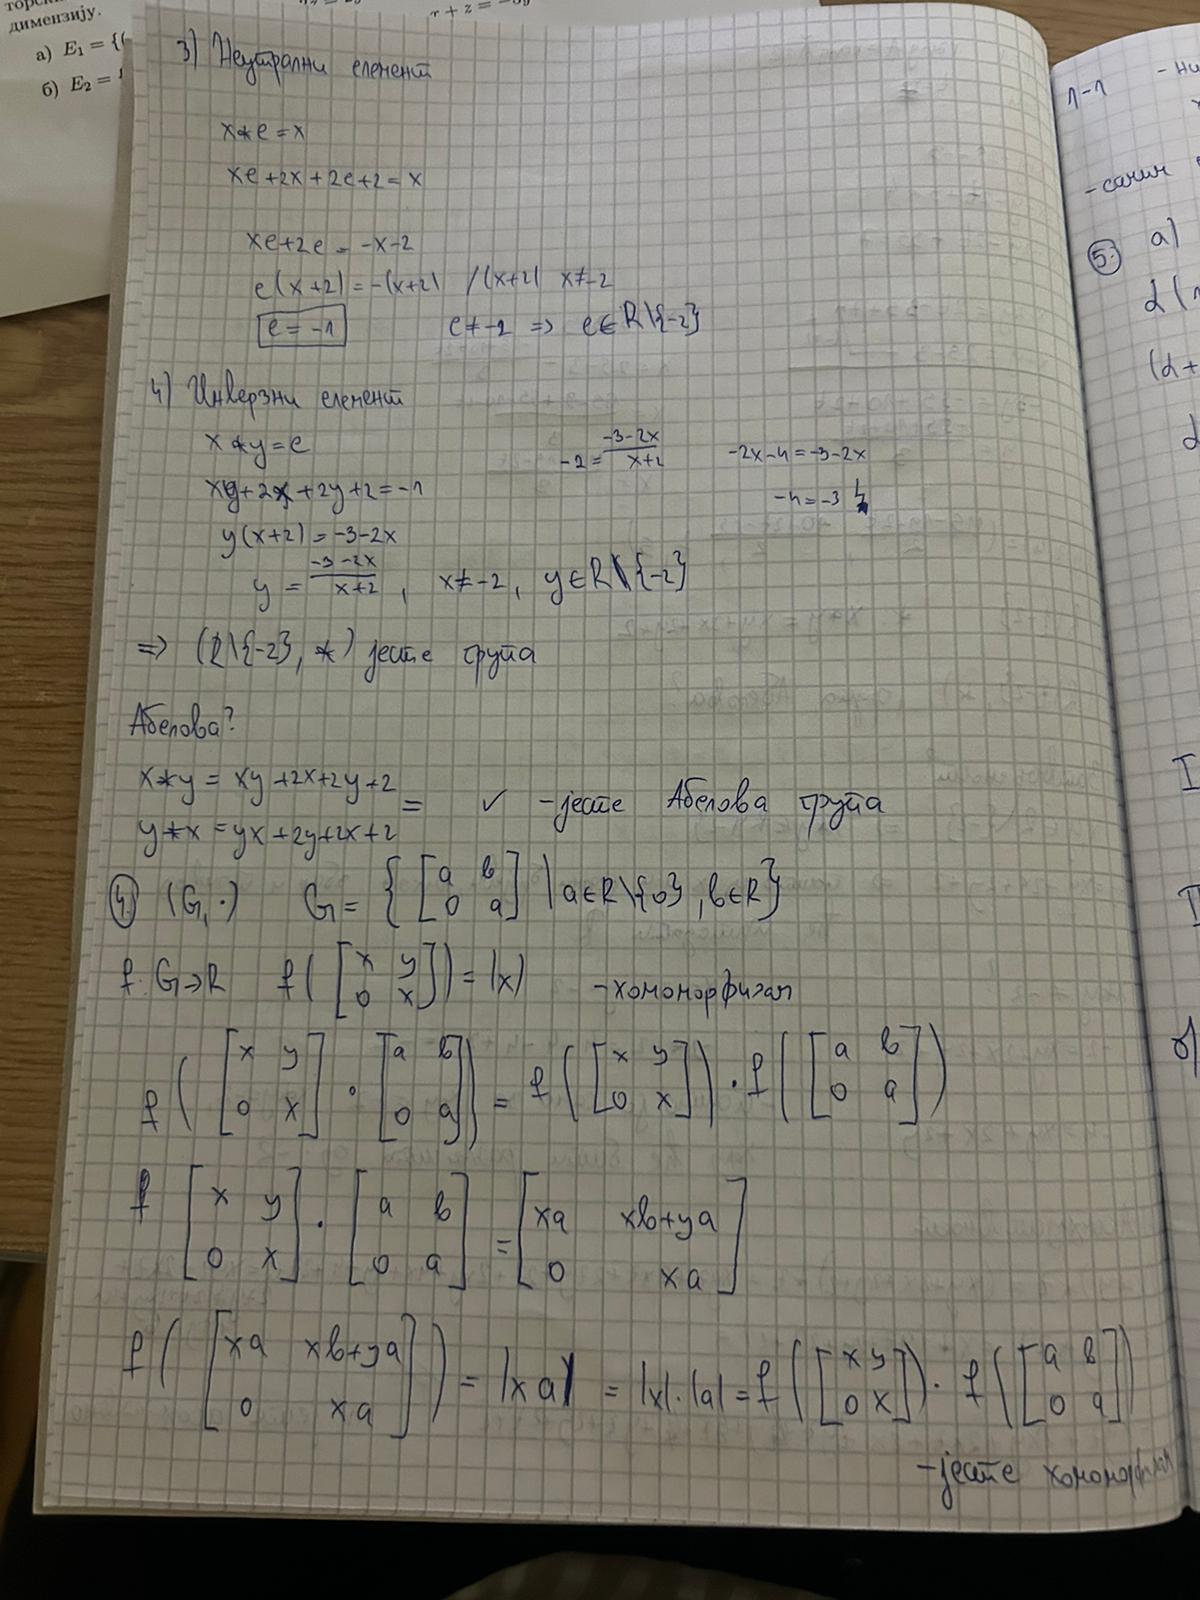 димензију.
а) E₁ = {(
б) E₂ =
3) Неутрални елемент
x*e=x
xe+2x+2e+2=x
xe+2e=-x-2
e(x+2)=-(x+2) /(x+2) x≠-2
e=-1 e≠-2 => e∈R\{-2}
4) Инверзни елемент
x*y=e
xy+2x+2y+2=-1
y(x+2)=-3-2x
y = (-3-2x)/(x+2), x≠-2, y∈R\{-2}
-2 = (-3-2x)/(x+2) -2x-4=-3-2x
-4=-3 ↯
=> (R\{-2}, *) јесте група
Абелова?
x*y = xy+2x+2y+2
= ✓ -јесте Абелова група
y*x = yx+2y+2x+2
4. (G,·) G = { [a b; 0 a] | a∈R\{0}, b∈R }
f: G→R f([x y; 0 x]) = |x| -хомоморфизам
f([x y; 0 x] · [a b; 0 a]) = f([x y; 0 x]) · f([a b; 0 a])
f [x y; 0 x] · [a b; 0 a] = [xa xb+ya; 0 xa]
f([xa xb+ya; 0 xa]) = |xa| = |x|·|a| = f([x y; 0 x]) · f([a b; 0 a])
-јесте хомоморфизам
1-1
5. а)
α(
(α+
α
I
II
б)